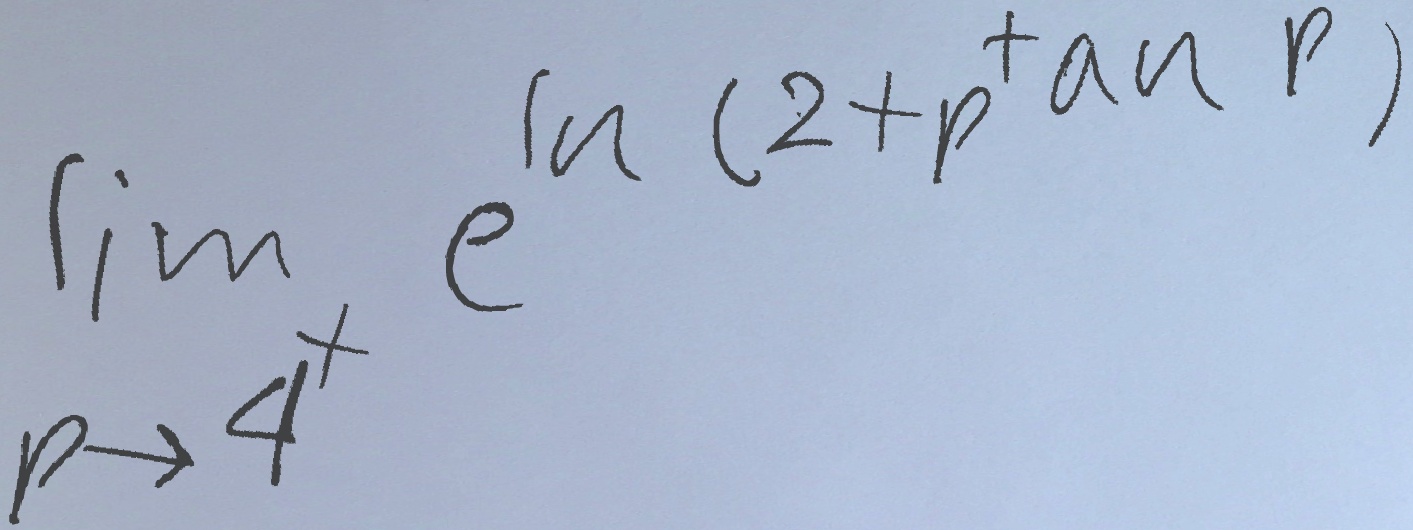 \lim_{p \to 4^+} e^{\ln(2+p^{\tan p})}